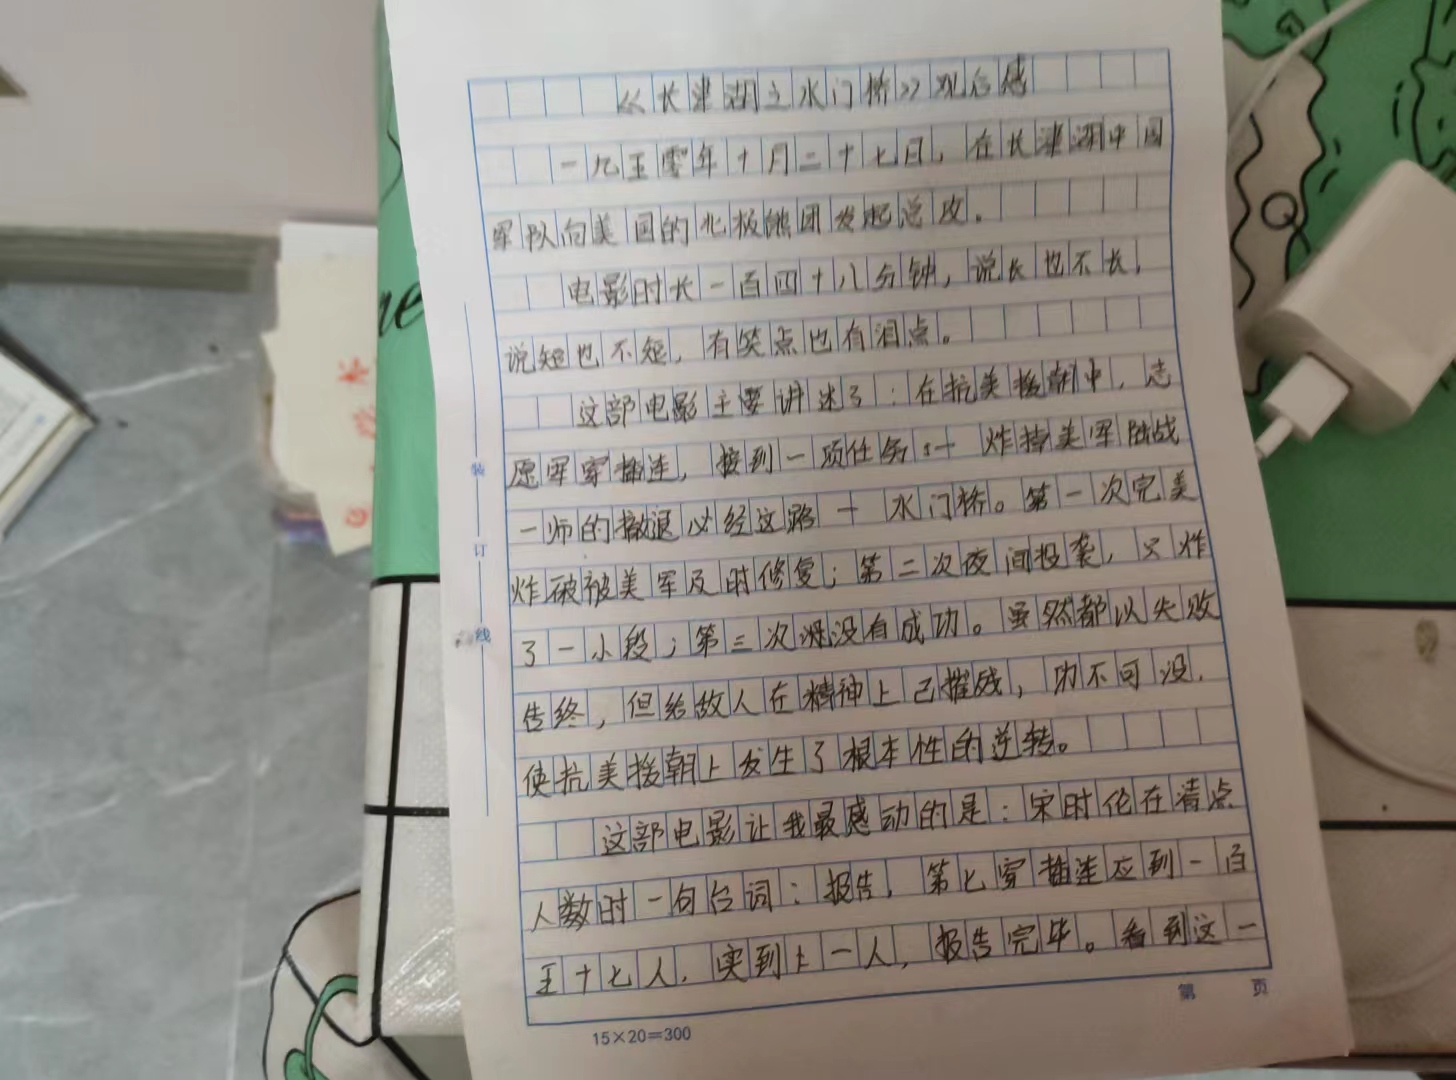 《长津湖之水门桥》观后感
一九五零年十月二十七日，在长津湖中国
军队向美国的北极熊团发起总攻．
电影时长一百四十八分钟，说长也不长，
说短也不短，有笑点也有泪点。
这部电影主要讲述了：在抗美援朝中，志
愿军穿插连，接到一项任务：一炸掉美军陆战
一师的撤退必经这路一水门桥。第一次完美
炸破被美军及时修复；第二次夜间投袭，只炸
了一小段；第三次没有成功。虽然都以失败
告终，但给敌人在精神上已摧残，功不可没．
使抗美援朝上发生了根本性的逆转。
这部电影让我最感动的是：宋时伦在清点
人数时一句台词：报告，第七穿插连应到一百
五十七人．实到一人，报告完毕。看到这一
装
订
线
第 页
15×20=300